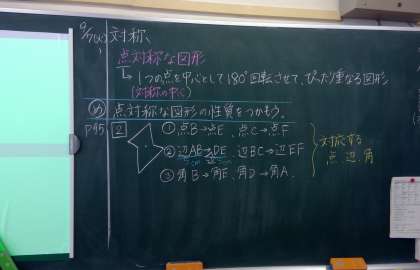 9/7(火) 対称
点対称な図形
→1つの点を中心として180°回転させて、ぴったり重なる図形
(対称の中心)
め 点対称な図形の性質をつかもう。
P15 2 ①点B→点E、点C→点F
②辺AB→DE 辺BC→辺EF
③角B→角E、角D→角A.
対応する
点、辺、角